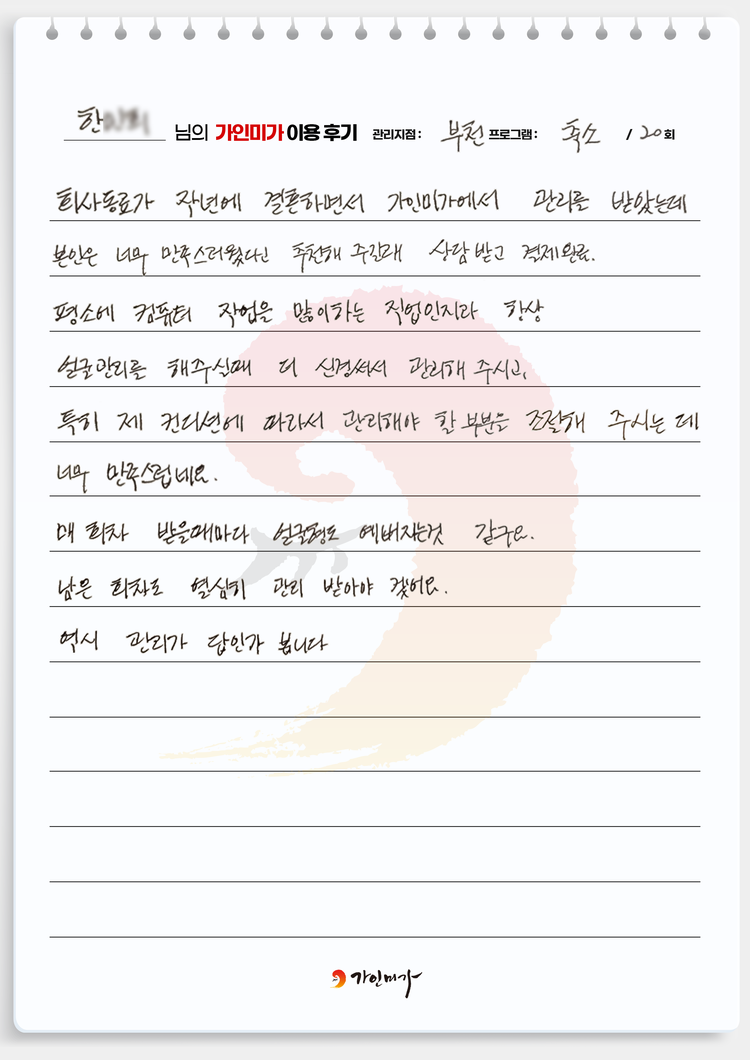 한 님의 가인미가 이용 후기 관리지점 : 부천 프로그램 : 축소 / 20회
회사동료가 작년에 결혼하면서 가인미가에서 관리를 받았는데
본인은 너무 만족스러웠다고 추천해 주길래 상담 받고 결제완료.
평소에 컴퓨터 작업을 많이하는 직업인지라 항상
얼굴관리를 해주실때 더 신경써서 관리해 주시고,
특히 제 컨디션에 따라서 관리해야 할 부분은 조절해 주시는 데
너무 만족스럽네요.
매 회차 받을때마다 얼굴형도 예뻐지는것 같구요.
남은 회차도 열심히 관리 받아야 겠어요.
역시 관리가 답인가 봅니다
가인미가